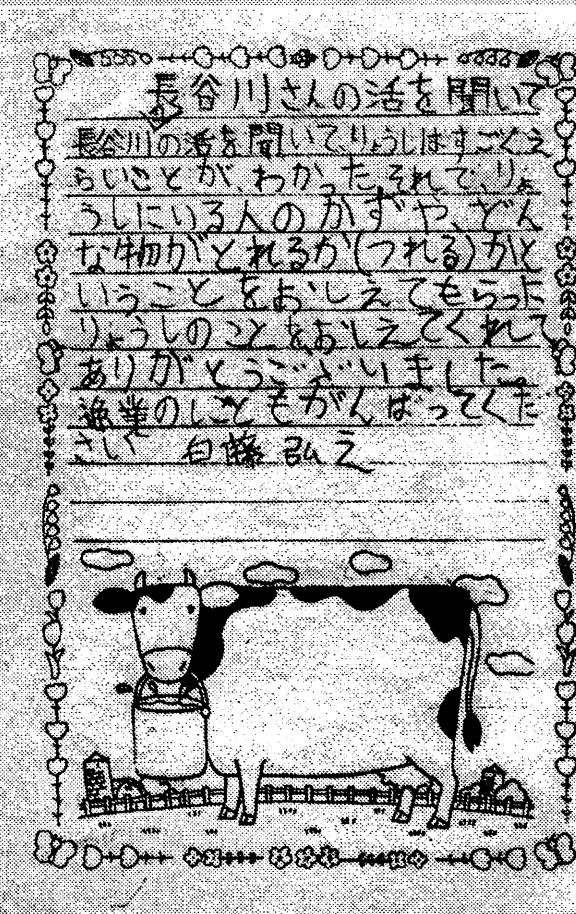 長谷川さんの活を聞いて
長谷川の活を聞いて、りょうしはすごくえ
らいことが、わかったそれで、りょ
うしにいる人のかずや、どん
な物がとれるか(つれる)かと
いうことをおしえてもらった
りょうしのことをおしえてくれて
ありがとうございました。
漁業のしごともがんばってくだ
さい 白藤 弘之